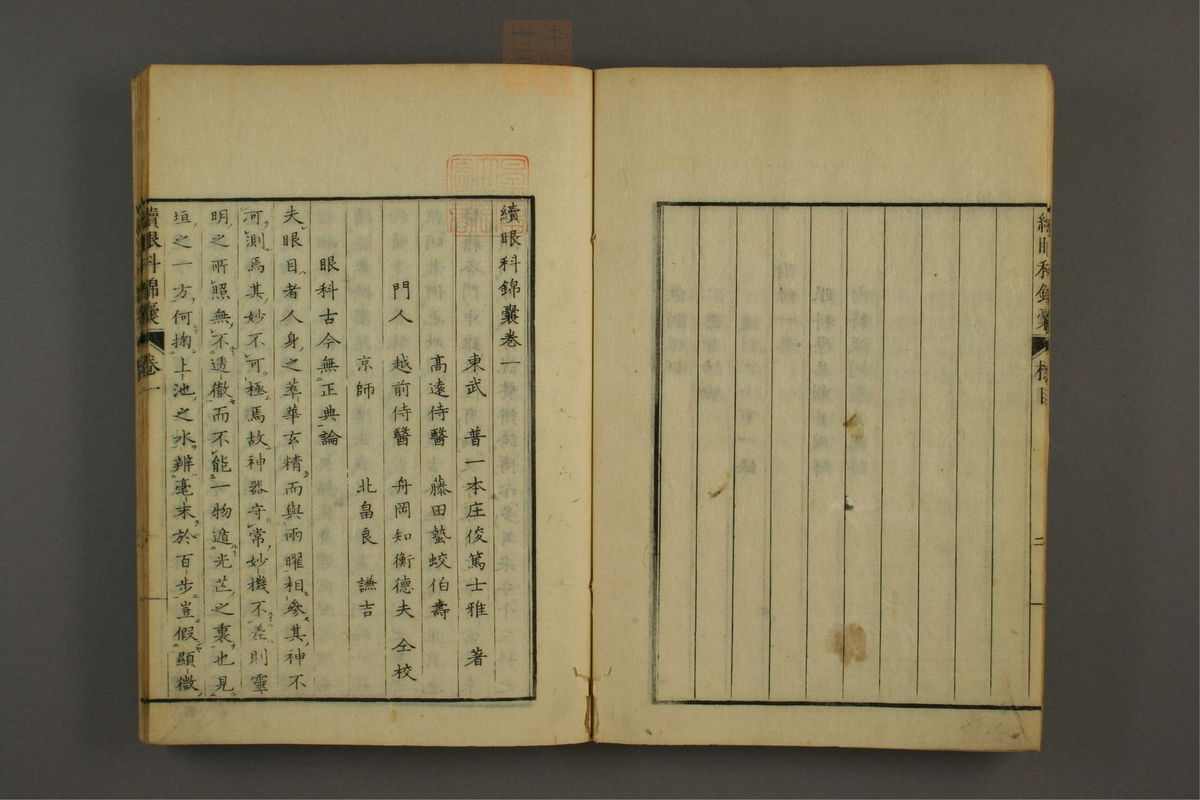 續眼科錦囊
二
續眼科錦囊卷一
東武 普一本庄俊篤士雅 著
高遠侍醫 藤田蟄蛟伯壽
門人 越前侍醫 舟岡知衡德夫 仝校
京師 北畠良 謙吉
眼科古今無正典論
夫眼目者人身之萃華玄精而與兩曜相參其神不
可測焉其妙不可極焉故神器守常妙機不差則靈
明之所照無不透徹而不能一物遁光芒之裏也見
垣之一方何掬上池之水辨毫末於百步豈假顯微
續眼科錦囊 卷一 一